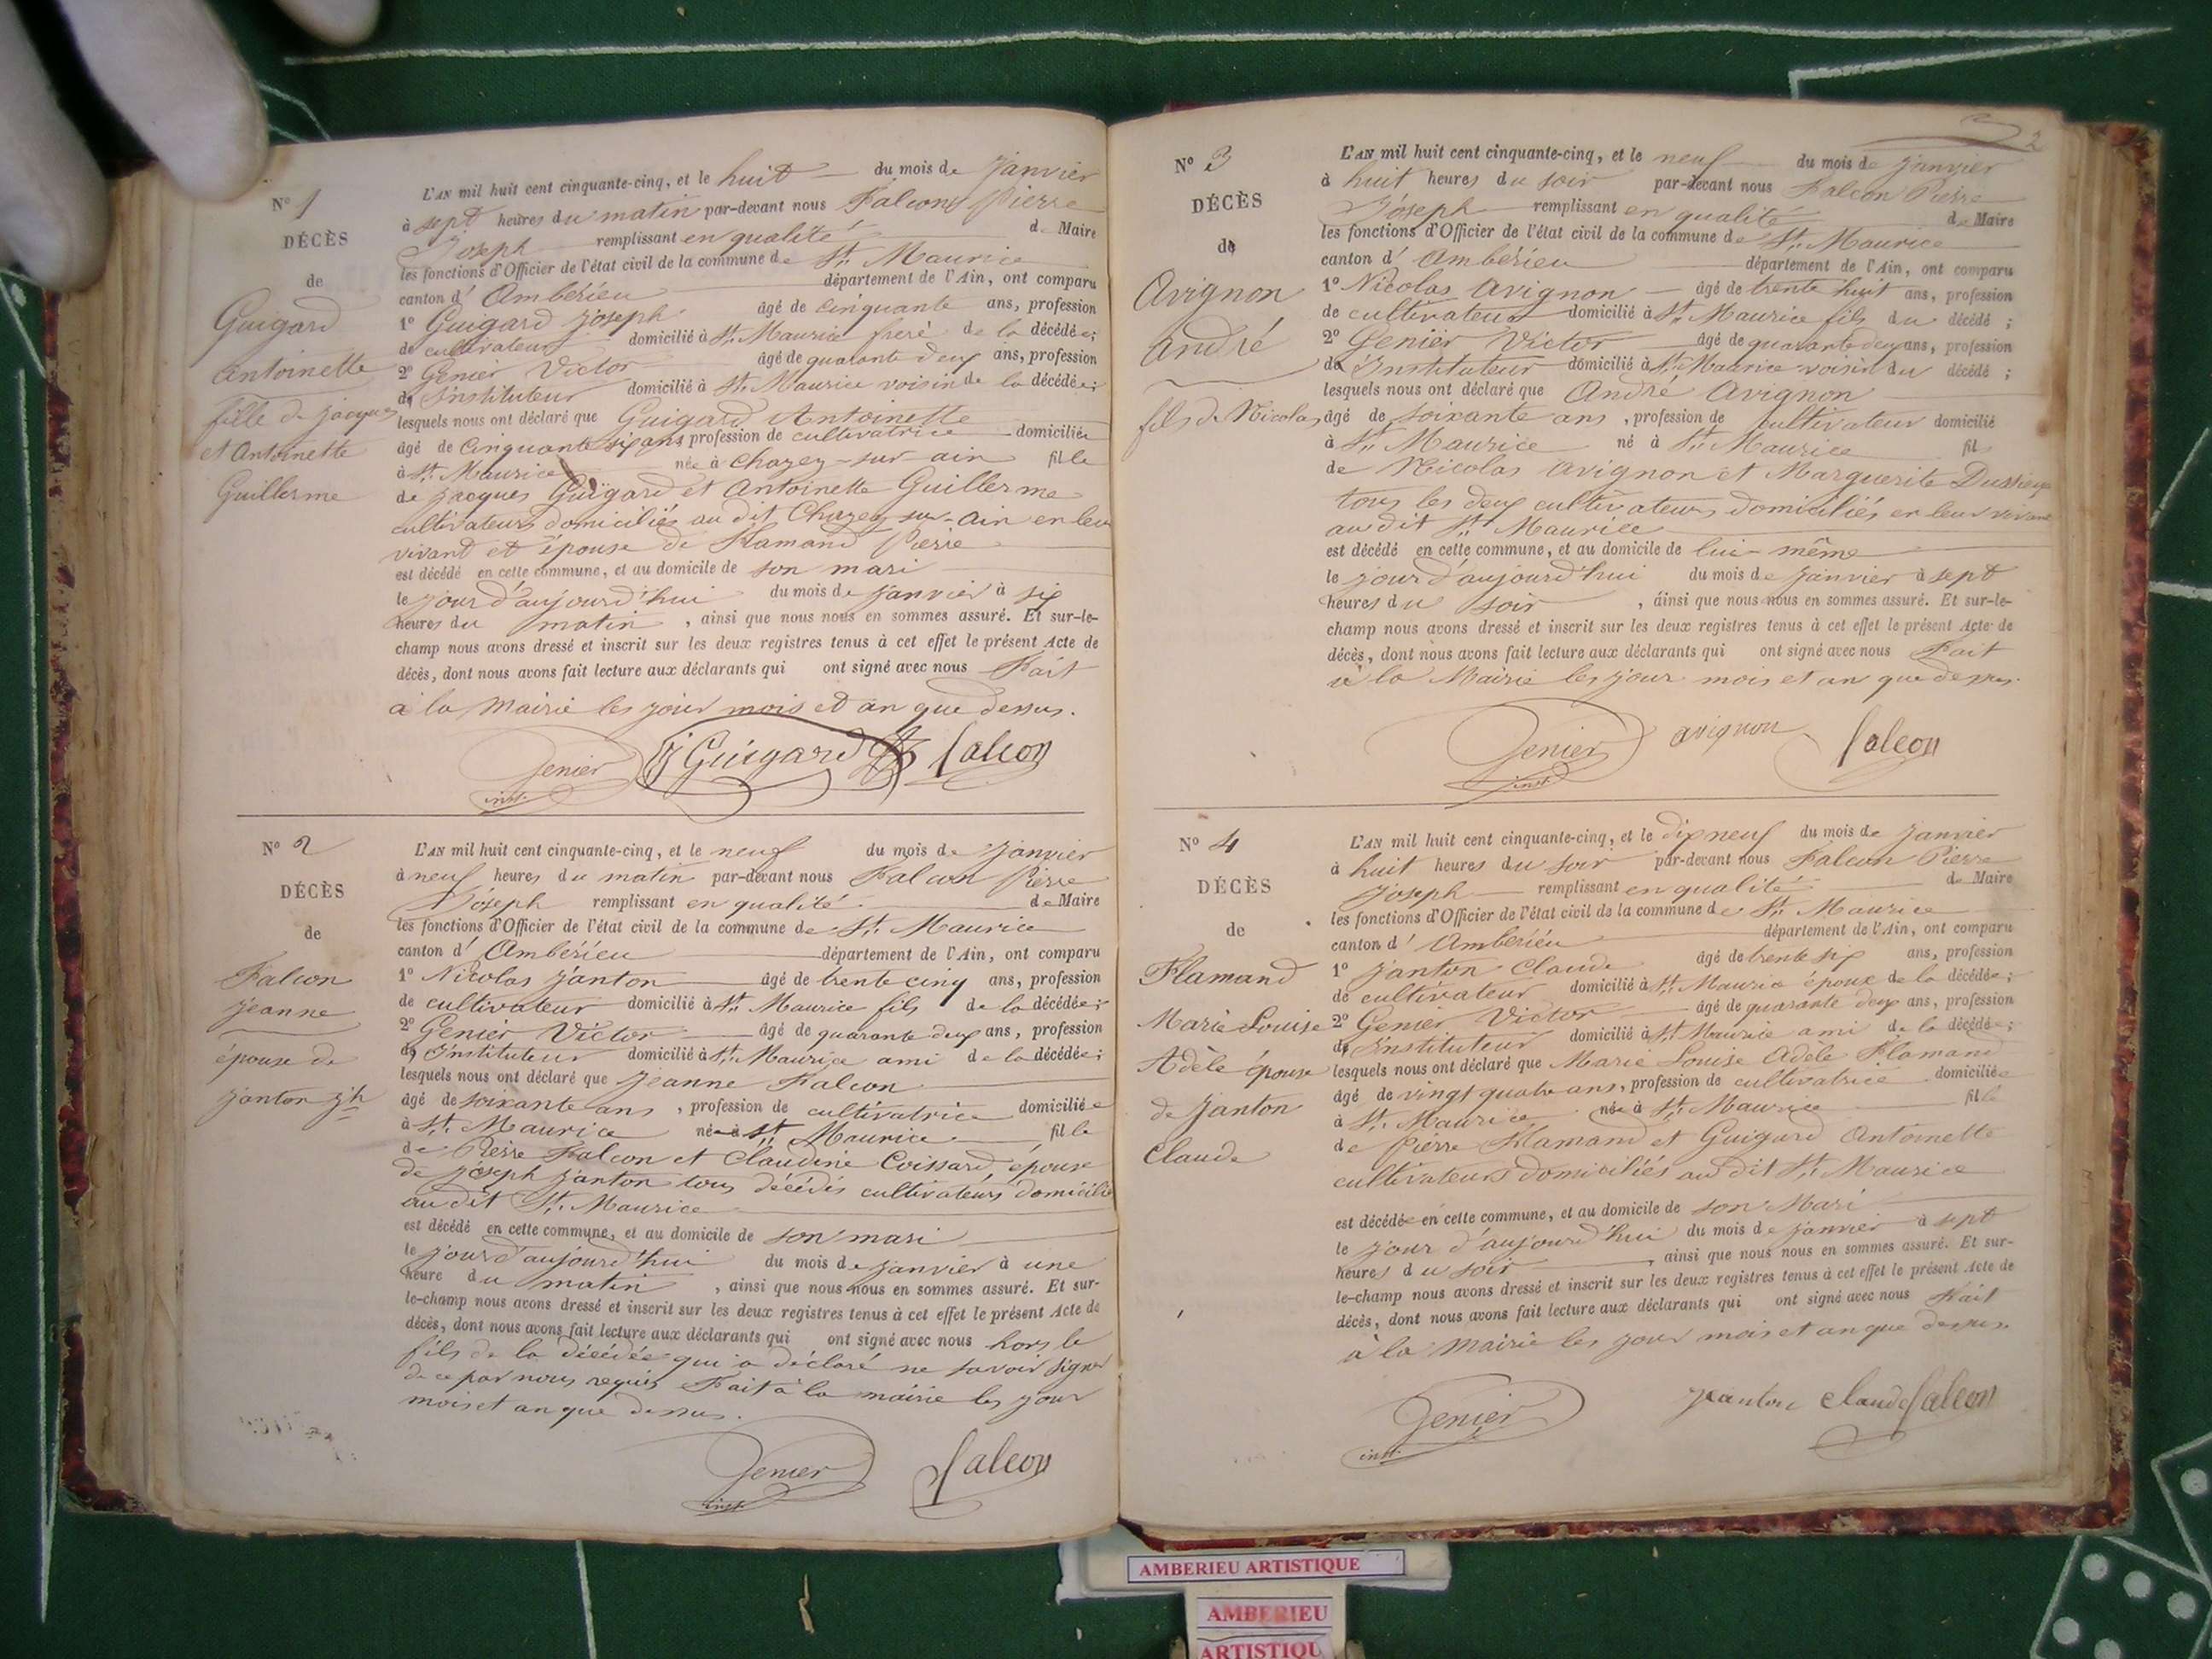 N° 1
DÉCÈS
de
Guigard
Antoinette
fille de Jacques
et Antoinette
Guillerme
L'AN mil huit cent cinquante-cinq, et le huit du mois de Janvier
à sept heures du matin par-devant nous Falcon Pierre
Joseph remplissant en qualité de Maire
les fonctions d'Officier de l'état civil de la commune de St. Maurice
canton d'Ambérieu département de l'Ain, ont comparu
1° Guigard Joseph âgé de cinquante ans, profession
de cultivateur domicilié à St. Maurice frère de la décédée;
2° Genier Victor âgé de quarante deux ans, profession
d'Instituteur domicilié à St. Maurice voisin de la décédée;
lesquels nous ont déclaré que Guigard Antoinette
âgé de Cinquante six ans profession de cultivatrice domiciliée
à St. Maurice née à Chazey-sur-ain fille
de Jacques Guigard et Antoinette Guillerme
cultivateurs domiciliés au dit Chazey sur-Ain en leur
vivant et épouse de Flamand Pierre
est décédé en cette commune, et au domicile de son mari
le jour d'aujourd'hui du mois de Janvier à six
heures du matin, ainsi que nous nous en sommes assuré. Et sur-le-
champ nous avons dressé et inscrit sur les deux registres tenus à cet effet le présent Acte de
décès, dont nous avons fait lecture aux déclarants qui ont signé avec nous Fait
à la Mairie les jour mois et an que dessus.
Genier inst. J Guigard Falcon
N° 2
DÉCÈS
de
Falcon
Jeanne
épouse de
Janton Jh
L'AN mil huit cent cinquante-cinq, et le neuf du mois de Janvier
à neuf heures du matin par-devant nous Falcon Pierre
Joseph remplissant en qualité de Maire
les fonctions d'Officier de l'état civil de la commune de St. Maurice
canton d'Ambérieu département de l'Ain, ont comparu
1° Nicolas Janton âgé de trente cinq ans, profession
de cultivateur domicilié à St. Maurice fils de la décédée;
2° Genier Victor âgé de quarante deux ans, profession
d'Instituteur domicilié à St. Maurice ami de la décédée;
lesquels nous ont déclaré que Jeanne Falcon
âgé de soixante ans, profession de cultivatrice domiciliée
à St. Maurice née à St Maurice fille
de Pierre Falcon et Claudine Coissard, épouse
de Joseph Janton tous décédés cultivateurs domiciliés
au dit St. Maurice
est décédé en cette commune, et au domicile de son mari
le jour d'aujourd'hui du mois de Janvier à une
heure du matin, ainsi que nous nous en sommes assuré. Et sur-
le-champ nous avons dressé et inscrit sur les deux registres tenus à cet effet le présent Acte de
décès, dont nous avons fait lecture aux déclarants qui ont signé avec nous hors le
fils de la décédée qui a déclaré ne savoir signer
de ce par nous requis Fait à la mairie les jour
mois et an que dessus.
Genier inst. Falcon
2
N° 3
DÉCÈS
de
Avignon
André
fils de Nicolas
L'AN mil huit cent cinquante-cinq, et le neuf du mois de Janvier
à huit heures du soir par-devant nous Falcon Pierre
Joseph remplissant en qualité de Maire
les fonctions d'Officier de l'état civil de la commune de St. Maurice
canton d'Ambérieu département de l'Ain, ont comparu
1° Nicolas Avignon âgé de trente huit ans, profession
de cultivateur domicilié à St. Maurice fils du décédé;
2° Genier Victor âgé de quarante deux ans, profession
d'Instituteur domicilié à St. Maurice voisin du décédé;
lesquels nous ont déclaré que André Avignon
âgé de soixante ans, profession de cultivateur domicilié
à St. Maurice né à St. Maurice fils
de Nicolas Avignon et Marguerite
tous les deux cultivateurs domiciliés en leur vivant
au dit St. Maurice
est décédé en cette commune, et au domicile de lui-même
le jour d'aujourd'hui du mois de Janvier à sept
heures du soir, ainsi que nous nous en sommes assuré. Et sur-le-
champ nous avons dressé et inscrit sur les deux registres tenus à cet effet le présent Acte de
décès, dont nous avons fait lecture aux déclarants qui ont signé avec nous Fait
à la Mairie les jour mois et an que dessus.
Genier inst. avignon Falcon
N° 4
DÉCÈS
de
Flamand
Marie Louise
Adèle épouse
de Janton
Claude
L'AN mil huit cent cinquante-cinq, et le dix neuf du mois de Janvier
à huit heures du soir par-devant nous Falcon Pierre
Joseph remplissant en qualité de Maire
les fonctions d'Officier de l'état civil de la commune de St. Maurice
canton d'Ambérieu département de l'Ain, ont comparu
1° Janton Claude âgé de trente six ans, profession
de cultivateur domicilié à St. Maurice époux de la décédée;
2° Genier Victor âgé de quarante deux ans, profession
d'Instituteur domicilié à St. Maurice ami de la décédée;
lesquels nous ont déclaré que Marie Louise Adèle Flamand
âgé de vingt quatre ans, profession de cultivatrice domiciliée
à St. Maurice née à St. Maurice fille
de Pierre Flamand et Guigard Antoinette
cultivateurs domiciliés au dit St. Maurice
est décédée en cette commune, et au domicile de son Mari
le jour d'aujourd'hui du mois de Janvier à sept
heures du soir, ainsi que nous nous en sommes assuré. Et sur-
le-champ nous avons dressé et inscrit sur les deux registres tenus à cet effet le présent Acte de
décès, dont nous avons fait lecture aux déclarants qui ont signé avec nous Fait
à la Mairie les jour mois et an que dessus.
Genier inst. Janton Claude Falcon
AMBERIEU ARTISTIQUE
AMBERIEU
ARTISTIQU